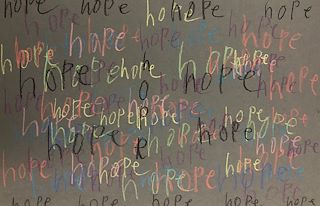 hope hope hope hope
hope hope hope hope
hope hope hope hope
hope hope hope hope
hope hope hope hope hope
hope hope hope hope hope
hope hope hope hope
hope hope hope hope
hope hope hope hope
hope hope hope hope